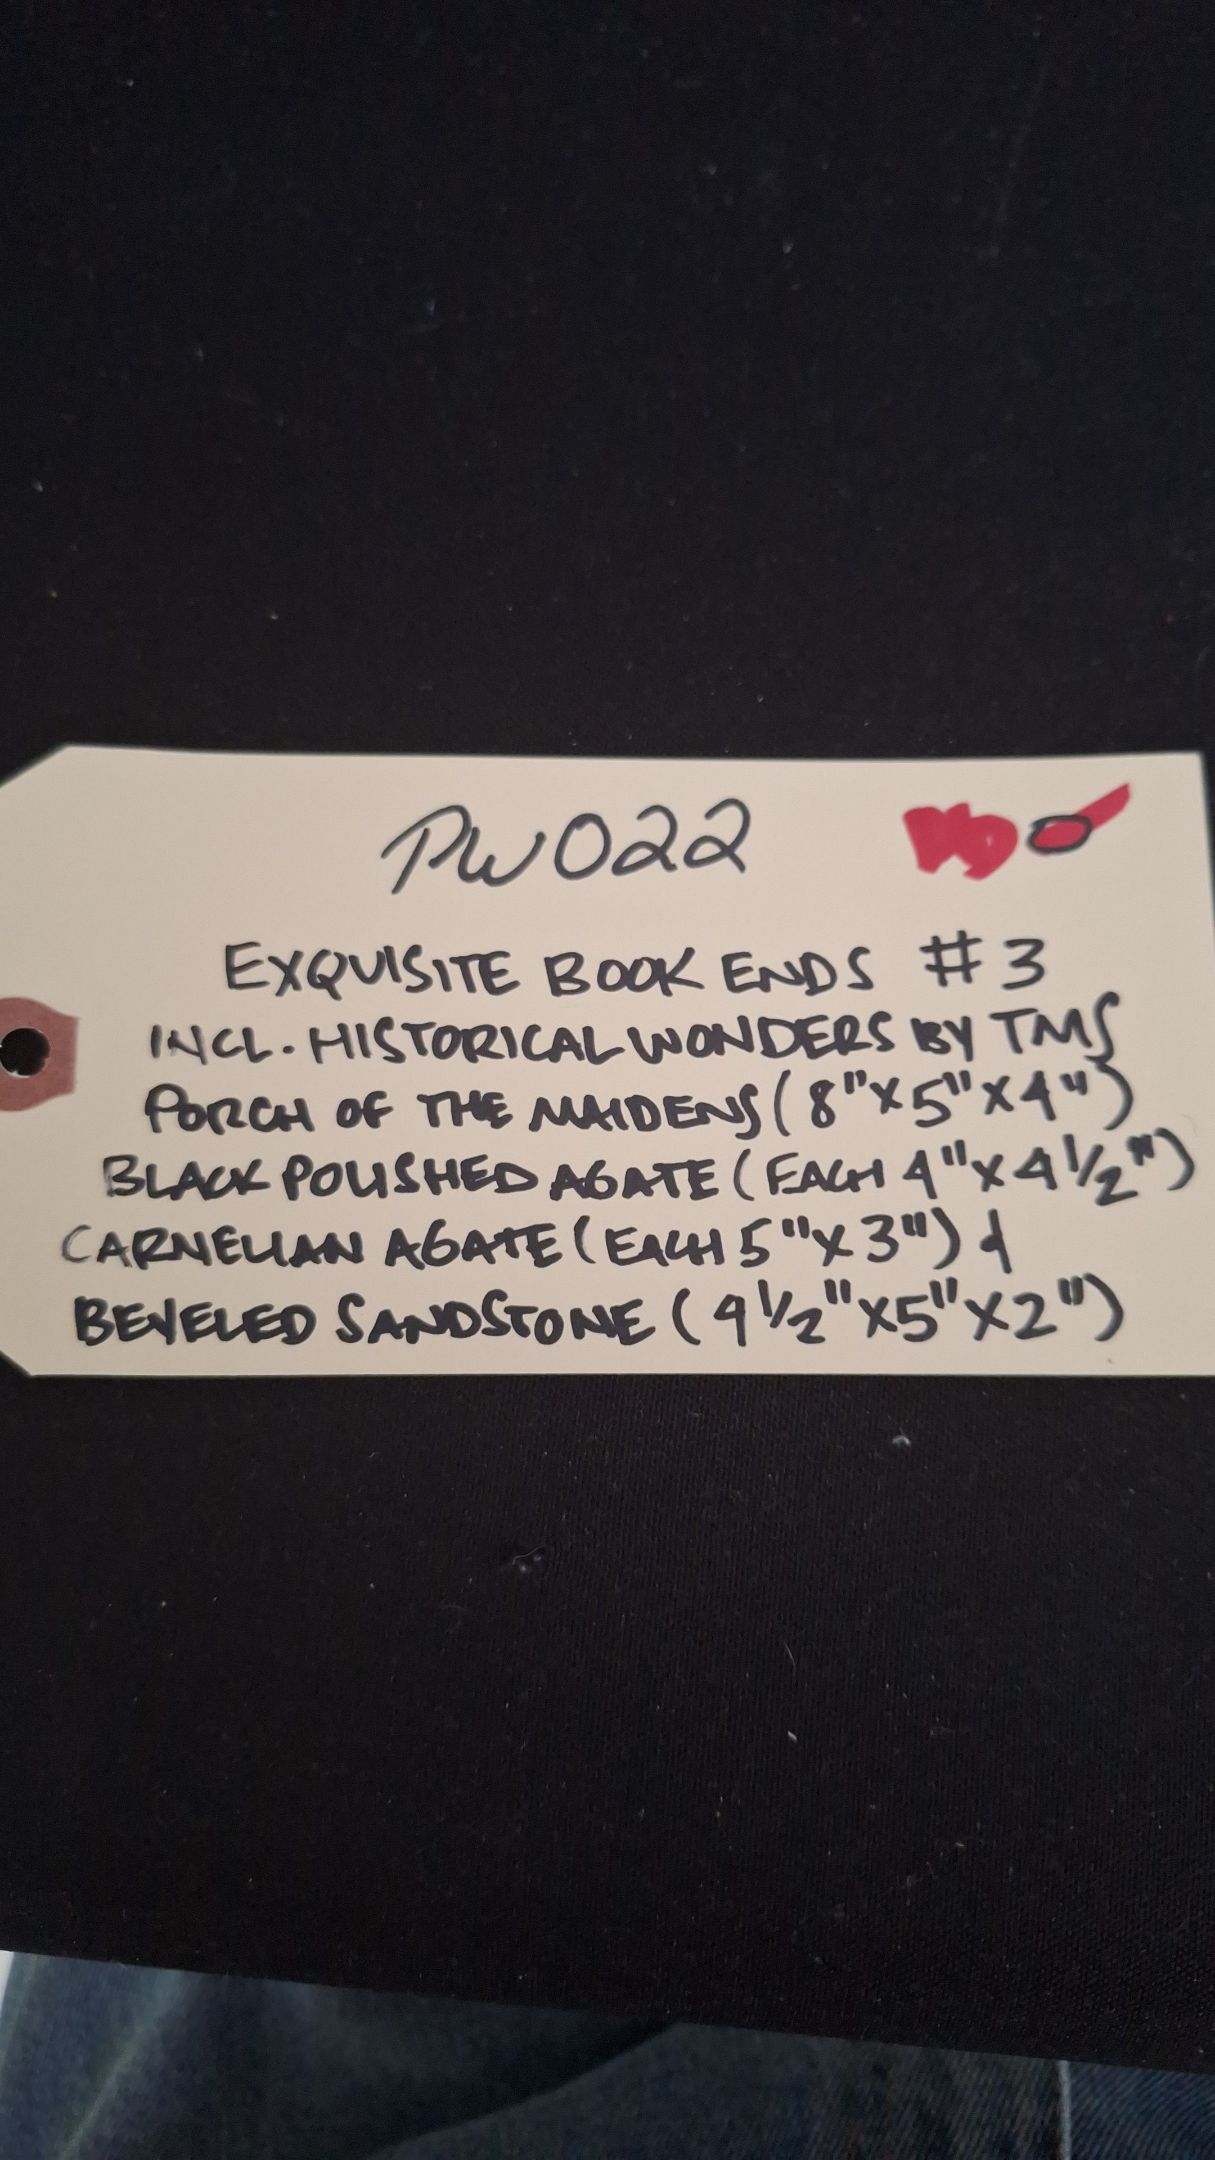 PW022
EXQUISITE BOOK ENDS #3
INCL. HISTORICAL WONDERS BY TMS
PORCH OF THE MAIDENS (8"X5"X4")
BLACK POLISHED AGATE (EACH 4"X4½")
CARNELIAN AGATE (EACH 5"X3") &
BEVELED SANDSTONE (4½"X5"X2")